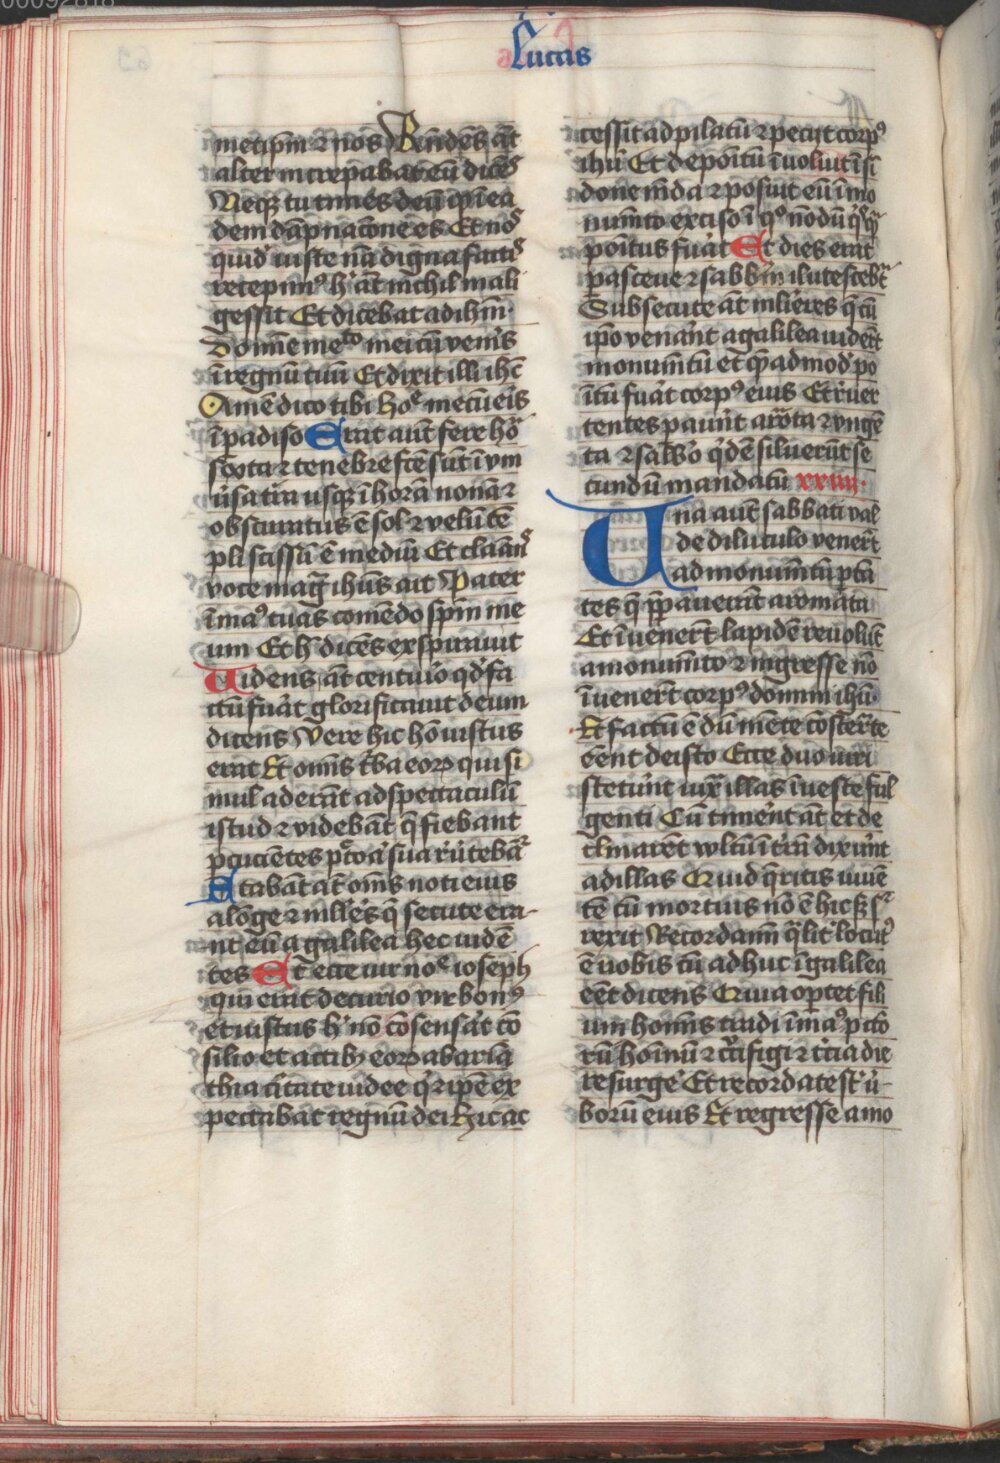 00092818
Lucas
metip̄m ⁊ nos R̄ndens āt
alter increpabat eū dicēs
Neqꝫ tu times deū qꝛ in ea
dem dāpnacōne es Et nos
quidē iuste nā digna factis
recepimꝰ hic āt nichil mali
gessit Et dicebat ad ihm̄
Domine memēto mei cū veneris
ī regnū tuū Et dixit illi ihc̄
Amē dico tibi hodie mecū eris
ī padiso Erat aut̄ fere horā
sexta ⁊ tenebre fc̄e sūt ī vni
uersa t̄ra usqꝫ ī horā nonā ⁊
obscuratus ē sol ⁊ velū tē
pli scissū ē mediū Et clamās
voce maḡ ihūs ait Pater
ī manꝰ tuas comēdo sp̄m me
um Et hec dicēs exspirauit
Uidens āt centurio qd̄ fa
ctū fuāt glorificauit deum
dicens Vere hic hō iustus
erat Et om̄is t̄ba eoꝝ qui si
mul aderāt ad spectaculū
istud ⁊ videbāt q̄ fiebant
pcucientes pectora sua reūtebāt
Stabāt āt om̄s noti eius
a lōge ⁊ mlīeres q̄ secute era
nt eū a galilea hec vidē
tes Et ecce vir noīe ioseph
qui erat decurio vir bonꝰ
et iustus hic nō cōsenserat cō
silio et actibꝫ eoꝝ ab arima
thia ciuitate iudee qui ⁊ ip̄e ex
pectabat regnū dei hic ac
cessit ad pilatū ⁊ peciit corpꝰ
ihū Et depoītū īuoluit ī si
done mūda ⁊ posuit eū ī mo
numēto exciso ī quo nōdū quisquā
poītus fuāt Et dies erat
pasceue ⁊ sabbm̄ ilucescebat
Subsecute āt mlīeres q̄ cū
ipō venāt a galilea viderūt
monumētū et quēadmodū po
itū fuāt corpꝰ eius Et reuer
tentes pauūt arōata ⁊ vngē
ta ⁊ sabbo qidē siluerūt se
cundū mandatū xxiiii
Una aut̄ sabbati val
de diluculo venerūt
ad monumētū porta
tes q̄ ppauerāt aromata
Et īuenerūt lapidē reuolutū
a monumēto ⁊ ingresse nō
īuenerūt corpꝰ domini ihū
Et factū ē dū mēte cōsternate
eēnt de isto Ecce duo viri
steterūt iux̄ illas ī veste ful
genti Cū timerēt āt et de
clinarēt vultū ī t̄rā dixerūt
ad illas Quid q̄ritis viuē
tē cū mortuis nō ē hic sꝫ sur
rexit Recordamī qualit̄ locutꝰ
ē vobis cū adhuc ī galilea
eēt dicens Quia oportet fili
um hom̄is tradi ī manꝰ pcto
rū hoīnū ⁊ crucifigi ⁊ t̄cia die
resurge Et recordate sūt v̄
borū eius Et regresse a mo